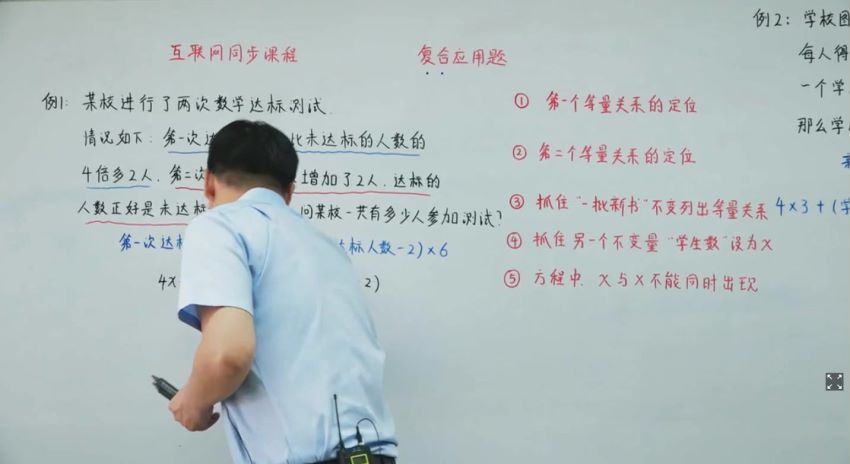 互联网同步课程
复合应用题
例1: 某校进行了两次数学达标测试.
情况如下: 第一次达 比未达标的人数的
4倍多2人. 第二次 增加了2人. 达标的
人数正好是未达标 问某校一共有多少人参加测试?
第一次达标 达标人数-2)×6
4x 2)
① 第一个等量关系的定位
② 第二个等量关系的定位
③ 抓住"一批新书"不变列出等量关系
④ 抓住另一个不变量"学生数"设为x
⑤ 方程中. x与x不能同时出现
例2: 学校图
每人得
一个学
那么学
4×3+(学